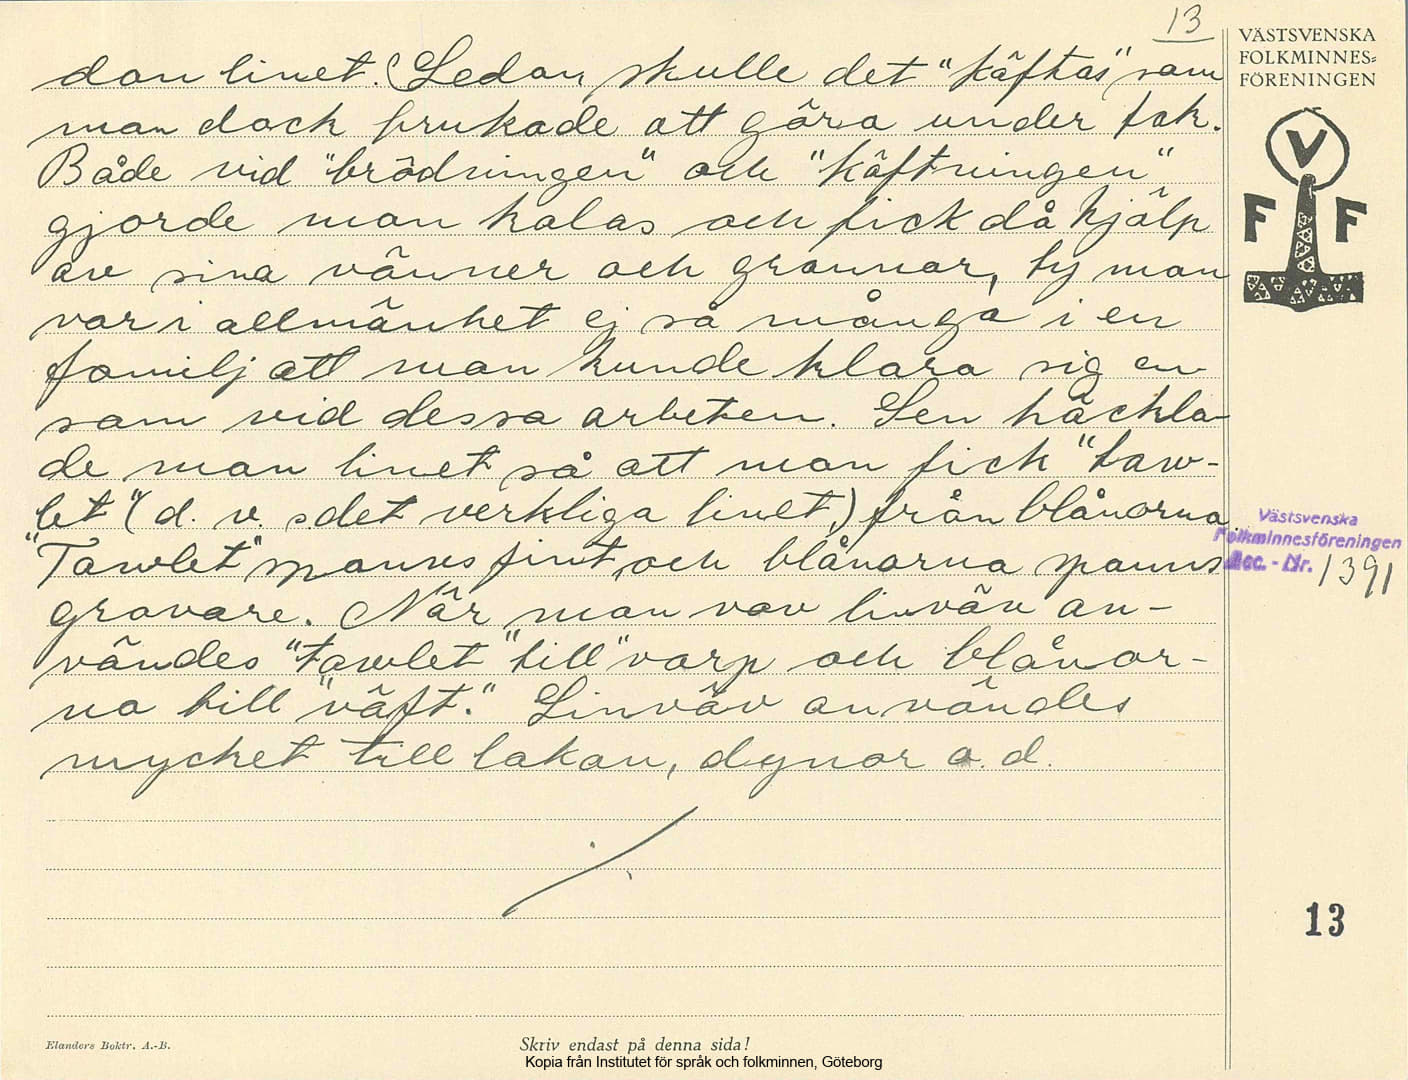 13
VÄSTSVENSKA
FOLKMINNES=
FÖRENINGEN
V
F F
dan linet. (Sedan skulle det "käftas" som
man dock brukade att göra under tak.
Både vid "brödningen" och "käftningen"
gjorde man kalas och fick då hjälp
av sina vänner och grannar, ty man
var i allmänhet ej så många i en
familj att man kunde klara sig en
sam vid dessa arbeten. Sen häckla-
de man linet så att man fick "taw-
let" (d. v. s det verkliga linet) från blånorna.
"Tawlet" spanns fint, och blånorna spanns
grovare. När man vav linväv an-
vändes "tawlet" till "varp och blånor-
na till "väft." Linväv användes
mycket till lakan, dynor o. d.
Västsvenska
Folkminnesföreningen
Acc. - Nr. 1391
13
Elanders Boktr. A.-B.
Skriv endast på denna sida!
Kopia från Institutet för språk och folkminnen, Göteborg